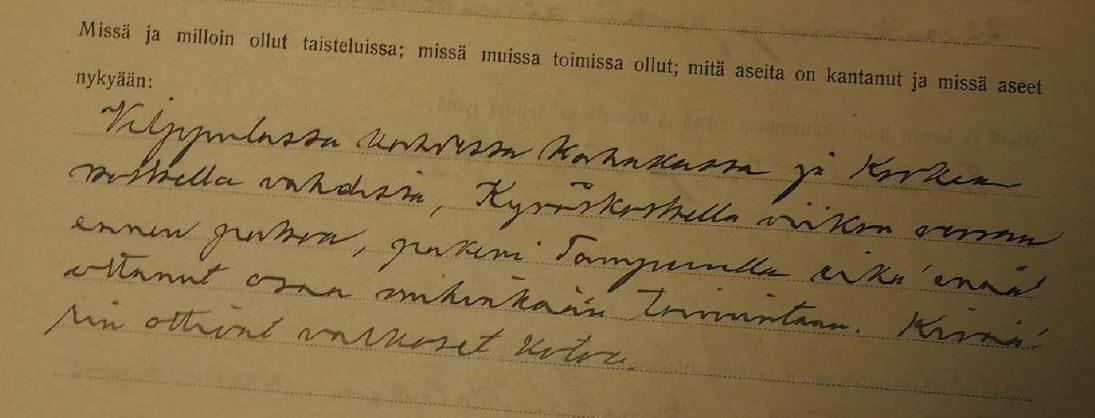 Missä ja milloin ollut taisteluissa; missä muissa toimissa ollut; mitä aseita on kantanut ja missä aseet
nykyään:
Vilppulassa kahdessa kahakassa ja Korkea
koskella vahdissa, Kyröskoskella viikon verran
ennen pakoa, pakeni Tampereelle eikä enää
ottanut osaa mihinkään toimintaan. Kivää
rin ottivat valkoset kotoa.